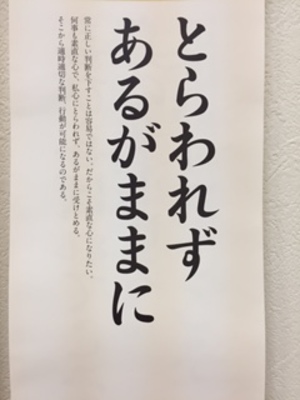 とらわれず
あるがままに
常に正しい判断を下すことは容易ではない。だからこそ素直な心になりたい。
何事も素直な心で、私心にとらわれず、あるがままに受けとめる。
そこから適時適切な判断、行動が可能になるのである。